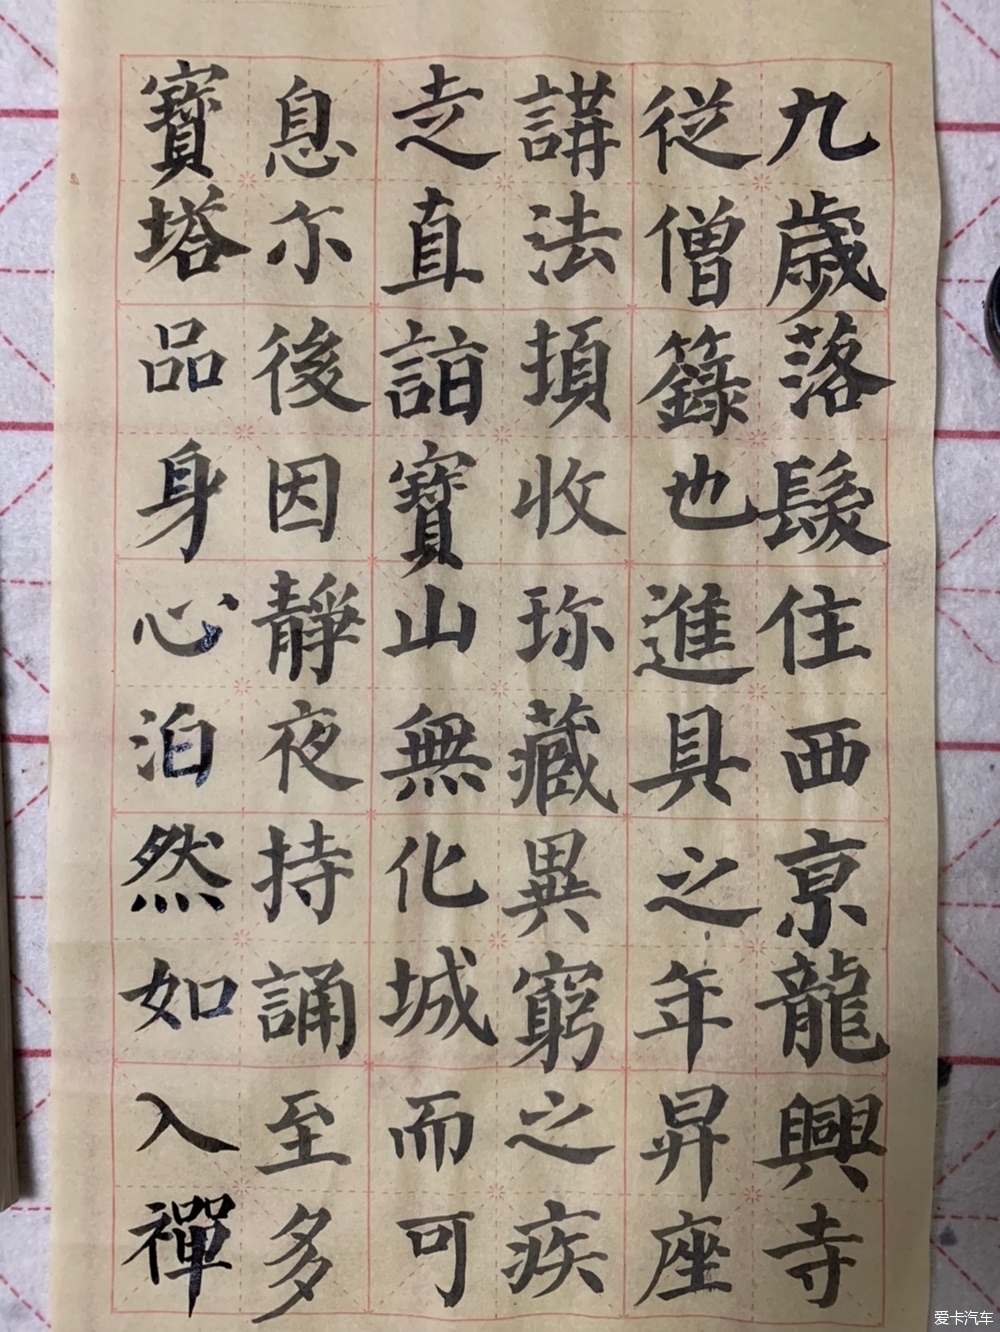 九歲落髮住西京龍興寺
從僧籙也進具之年昇座
講法頓收珎藏異窮之疾
走直詣寶山無化城而可
息尒後因靜夜持誦至多
寶塔品身心泊然如入禪
爱卡汽车